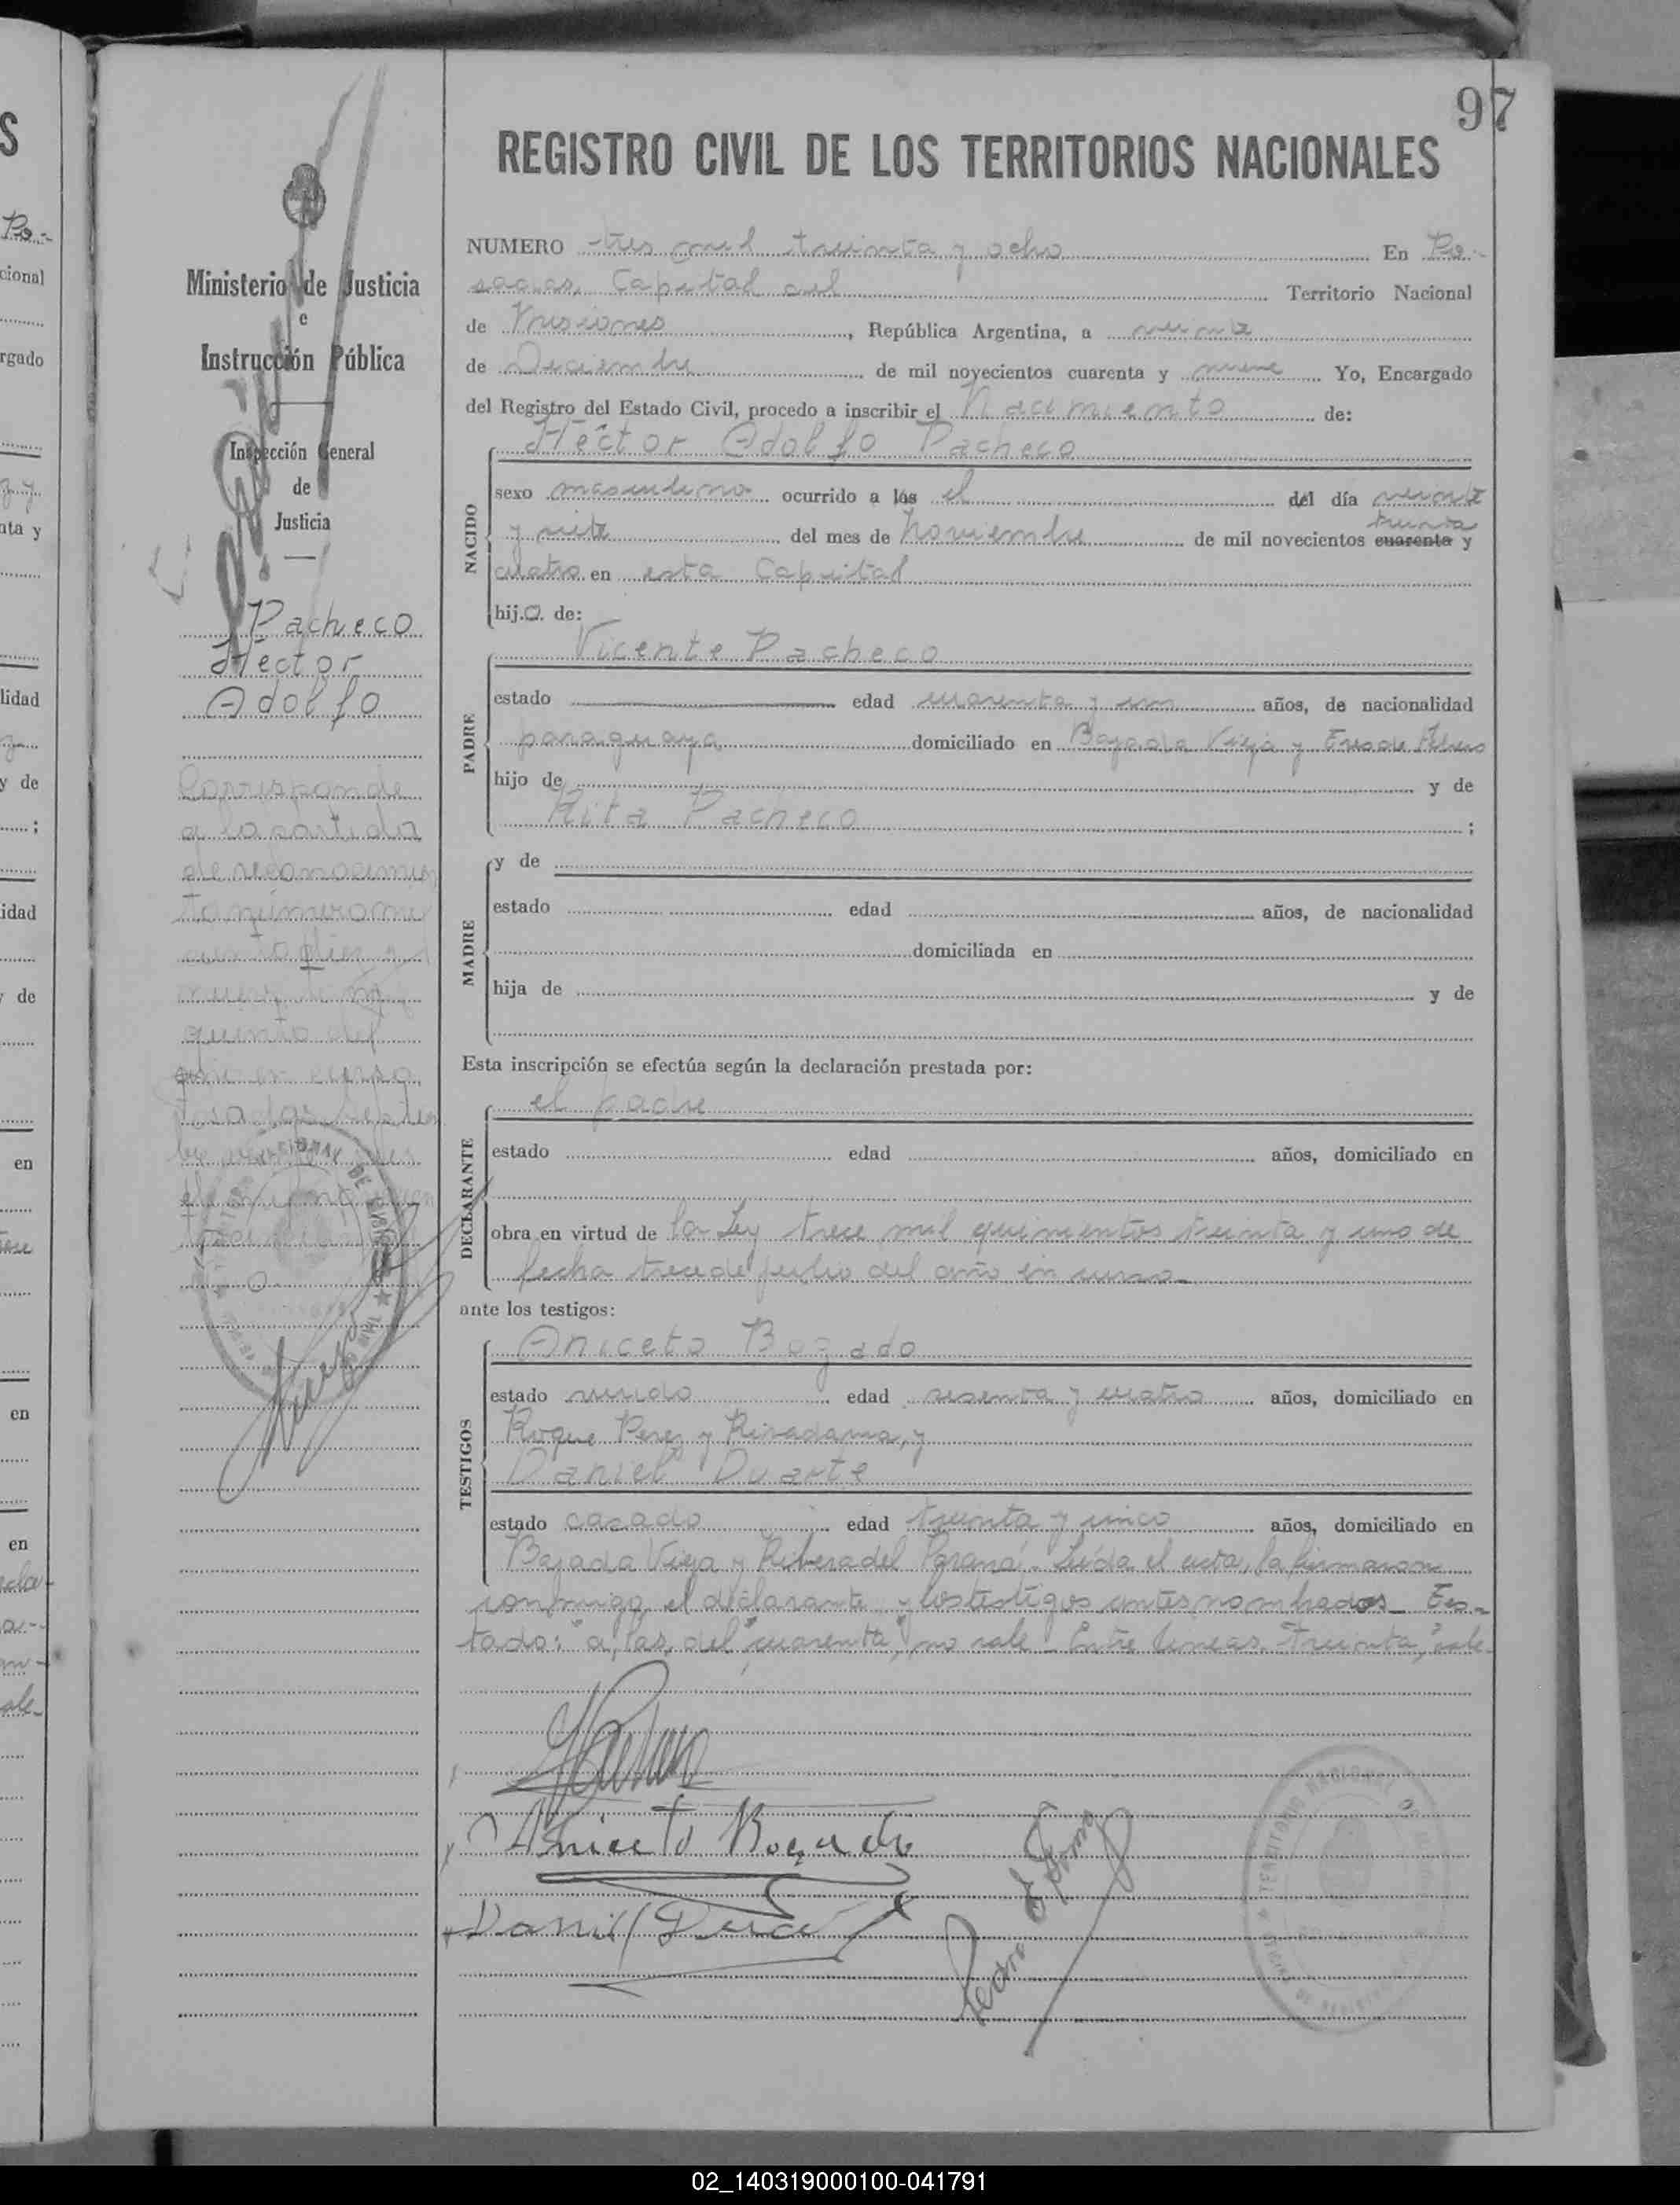 97
REGISTRO CIVIL DE LOS TERRITORIOS NACIONALES
Ministerio de Justicia
e
Instrucción Pública
Inspección General
de
Justicia
Pacheco
Hector
Adolfo
Corresponde
a la partida
de reconocimien
to número mil
quinto del
año en curso
Posadas
NUMERO tres mil treinta y ocho En Po-
sadas, Capital del Territorio Nacional
de Misiones, República Argentina, a veinte
de Diciembre de mil novecientos cuarenta y nueve Yo, Encargado
del Registro del Estado Civil, procedo a inscribir el Nacimiento de:
Héctor Adolfo Pacheco
NACIDO
sexo masculino ocurrido a las el del día veinte
y siete del mes de Noviembre de mil novecientos cuarenta treinta y
cuatro en esta Capital
hijo. de:
PADRE
Vicente Pacheco
estado edad cuarenta y un años, de nacionalidad
paraguaya domiciliado en Bajada Vieja y Tres de Febrero
hijo de y de
Rita Pacheco ;
MADRE
y de
estado edad años, de nacionalidad
domiciliada en
hija de y de
Esta inscripción se efectúa según la declaración prestada por:
DECLARANTE
el padre
estado edad años, domiciliado en
obra en virtud de la Ley trece mil quinientos treinta y uno de
fecha trece de julio del año en curso
ante los testigos:
TESTIGOS
Aniceto Bogado
estado viudo edad sesenta y cuatro años, domiciliado en
Roque Perez y Rivadavia, y
Daniel Duarte
estado casado edad treinta y cinco años, domiciliado en
Bajada Vieja y Ribera del Paraná. Leída el acta, la firmaron
conmigo el declarante y los testigos antes nombrados. Tes-
tado: "a las, del "cuarenta", no vale. Entre lineas "treinta", vale-
Aniceto Bogado
02_140319000100-041791